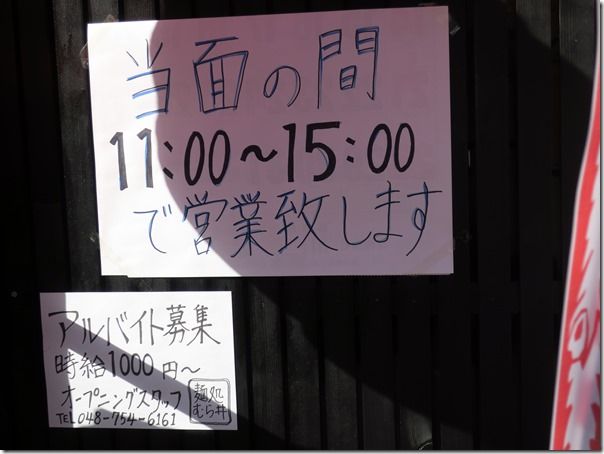 当面の間
11:00～15:00
で営業致します
アルバイト募集
時給1000円～
オープニングスタッフ
TEL048-754-6161
麺処
むら井